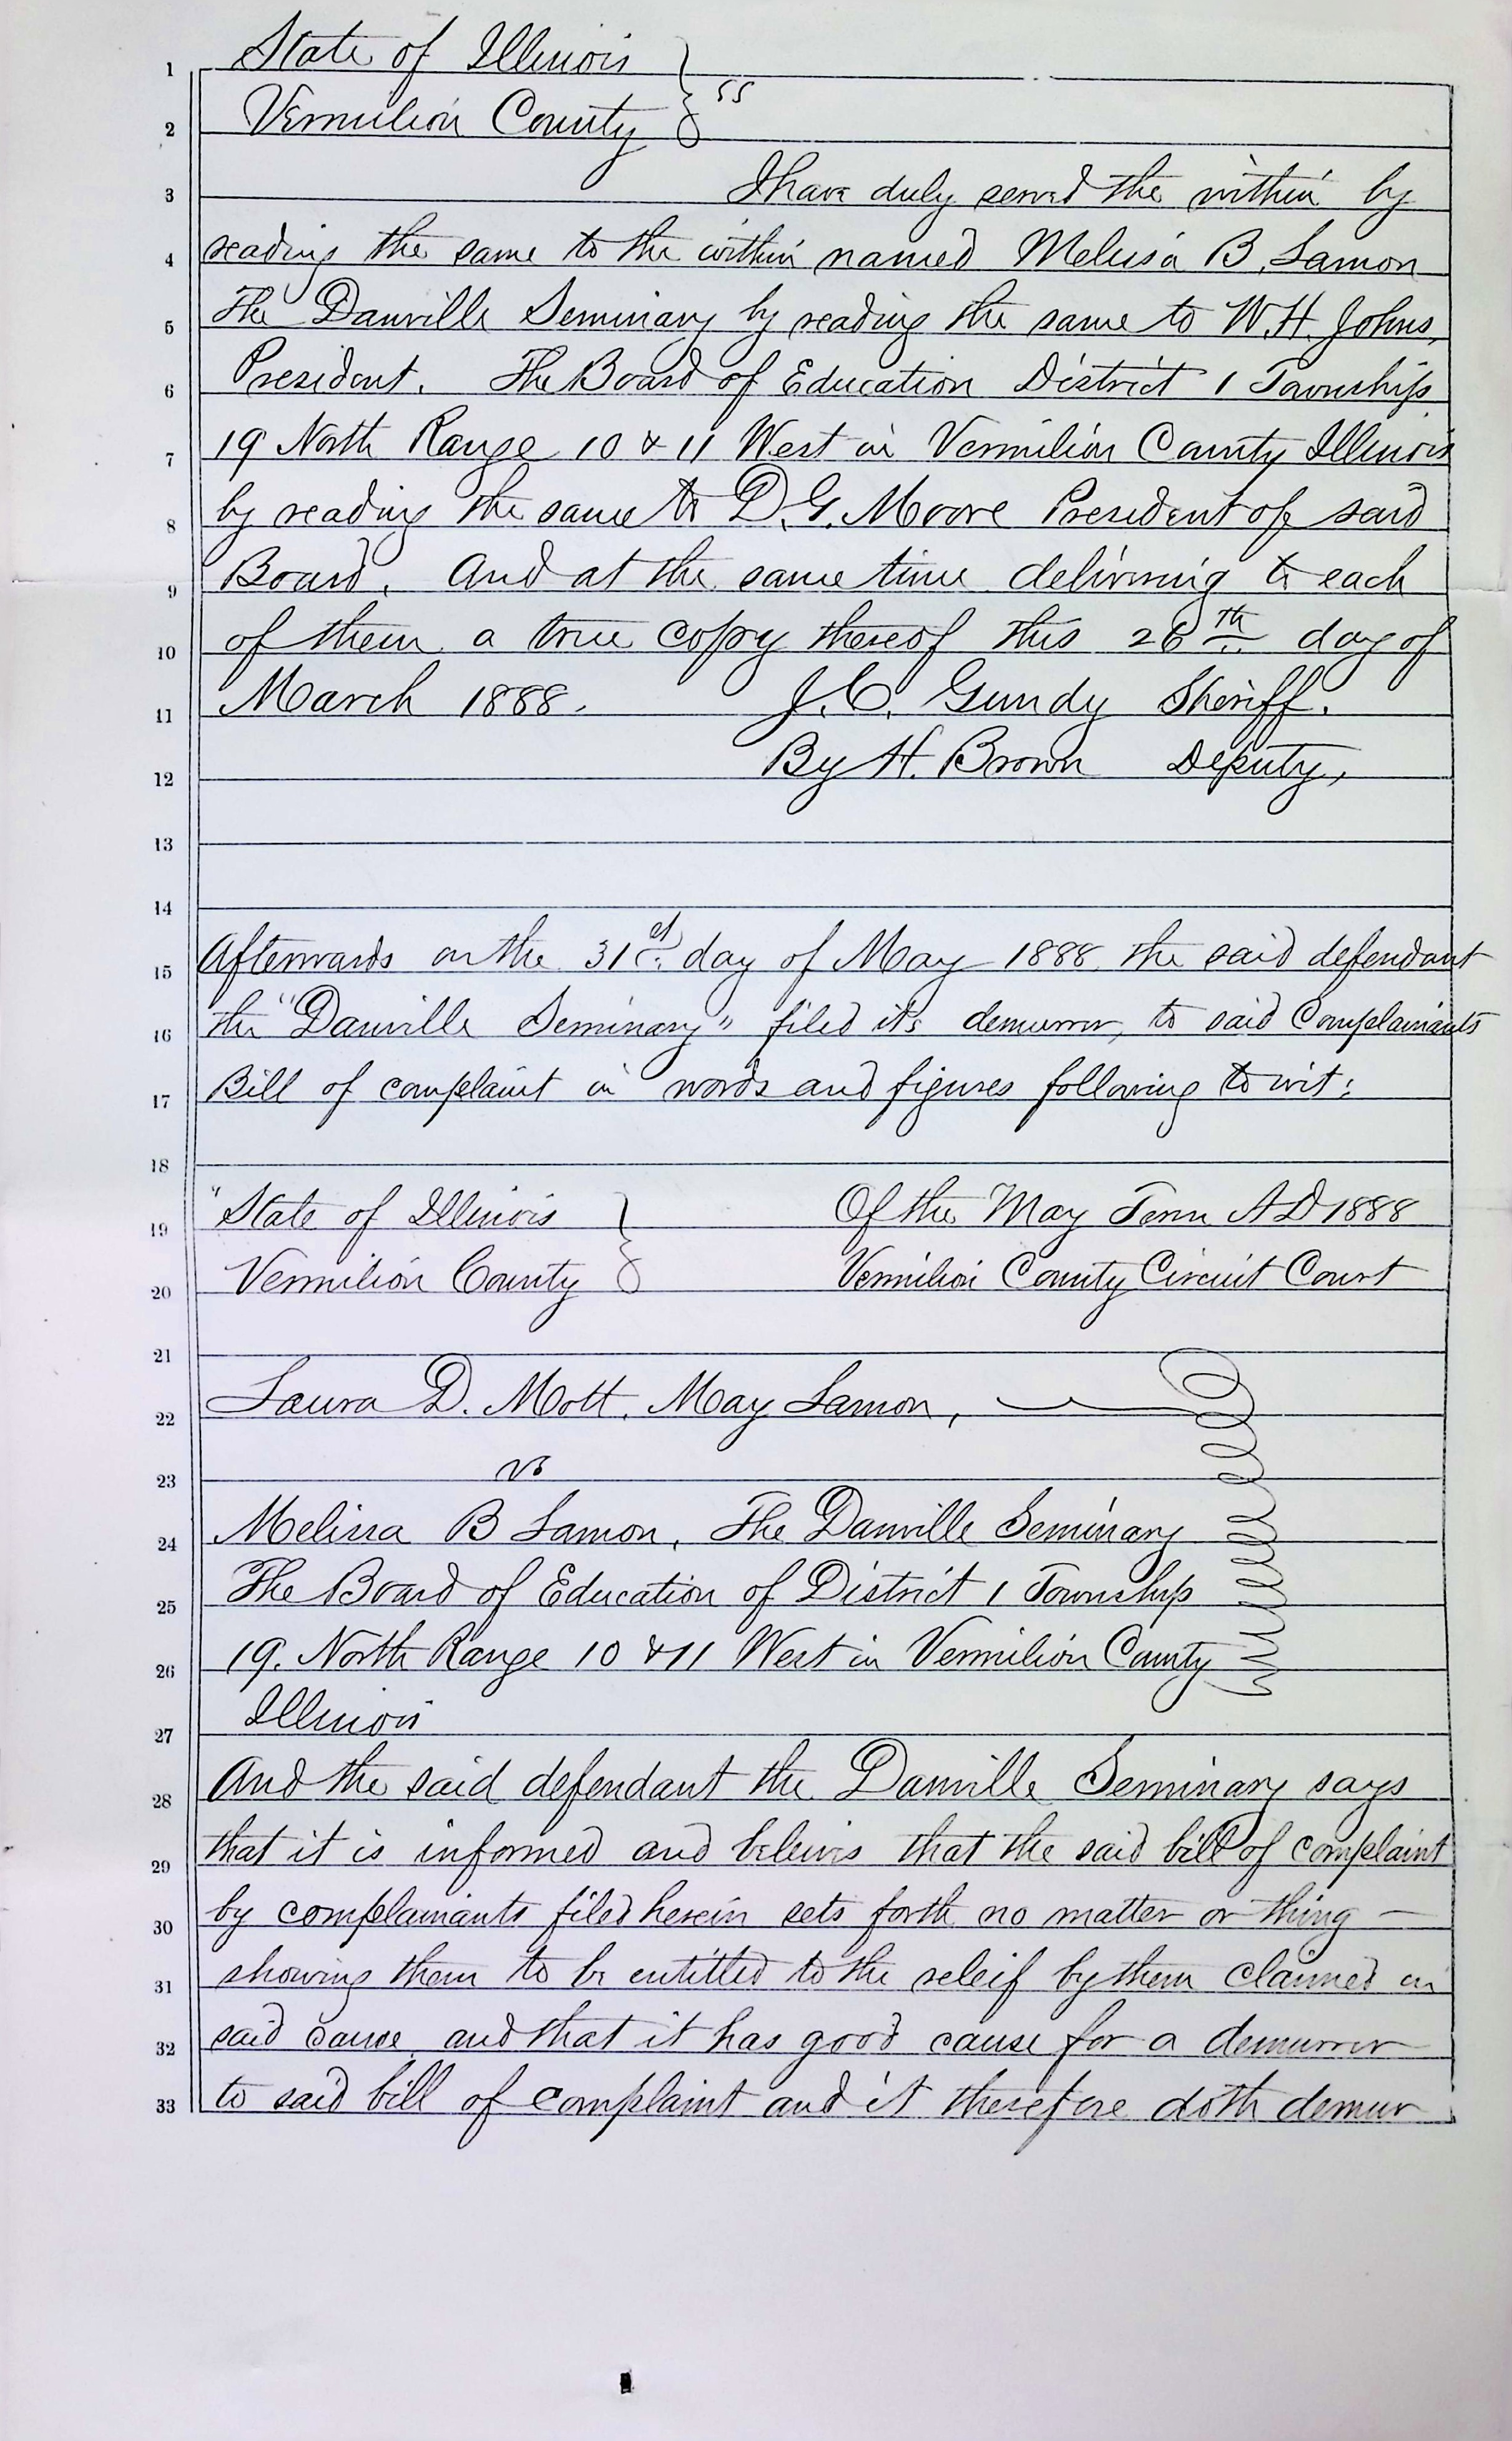 1 State of Illinois } ss
2 Vermilion County }
3 I have duly served the within by
4 reading the same to the within named Melissa B. Lamon
5 The Danville Seminary by reading the same to W. H. Johns,
6 President. The Board of Education District 1 Township
7 19 North Range 10 & 11 West in Vermilion County Illinois
8 by reading the same to D. G. Moore President of said
9 Board. And at the same time delivering to each
10 of them a true copy thereof this 26th day of
11 March 1888. J. C. Gundy Sheriff.
12 By H. Brown Deputy,
13
14
15 Afterwards on the 31st day of May 1888 the said defendant
16 the "Danville Seminary" filed it's demurrer, to said Complainants
17 Bill of complaint in words and figures following to wit:
18
19 "State of Illinois } Of the May Term A D 1888
20 Vermilion County } Vermilion County Circuit Court
21
22 Laura D. Mott. May Lamon,
23 vs
24 Melissa B Lamon, The Danville Seminary
25 The Board of Education of District 1 Township
26 19. North Range 10 & 11 West in Vermilion County
27 Illinois
28 And the said defendant the Danville Seminary says
29 that it is informed and beleives that the said bill of complaint
30 by complainants filed herein sets forth no matter or thing —
31 showing them to be entitled to the releif by them claimed in
32 said cause, and that it has good cause for a demurrer
33 to said bill of complaint and it therefore doth demur